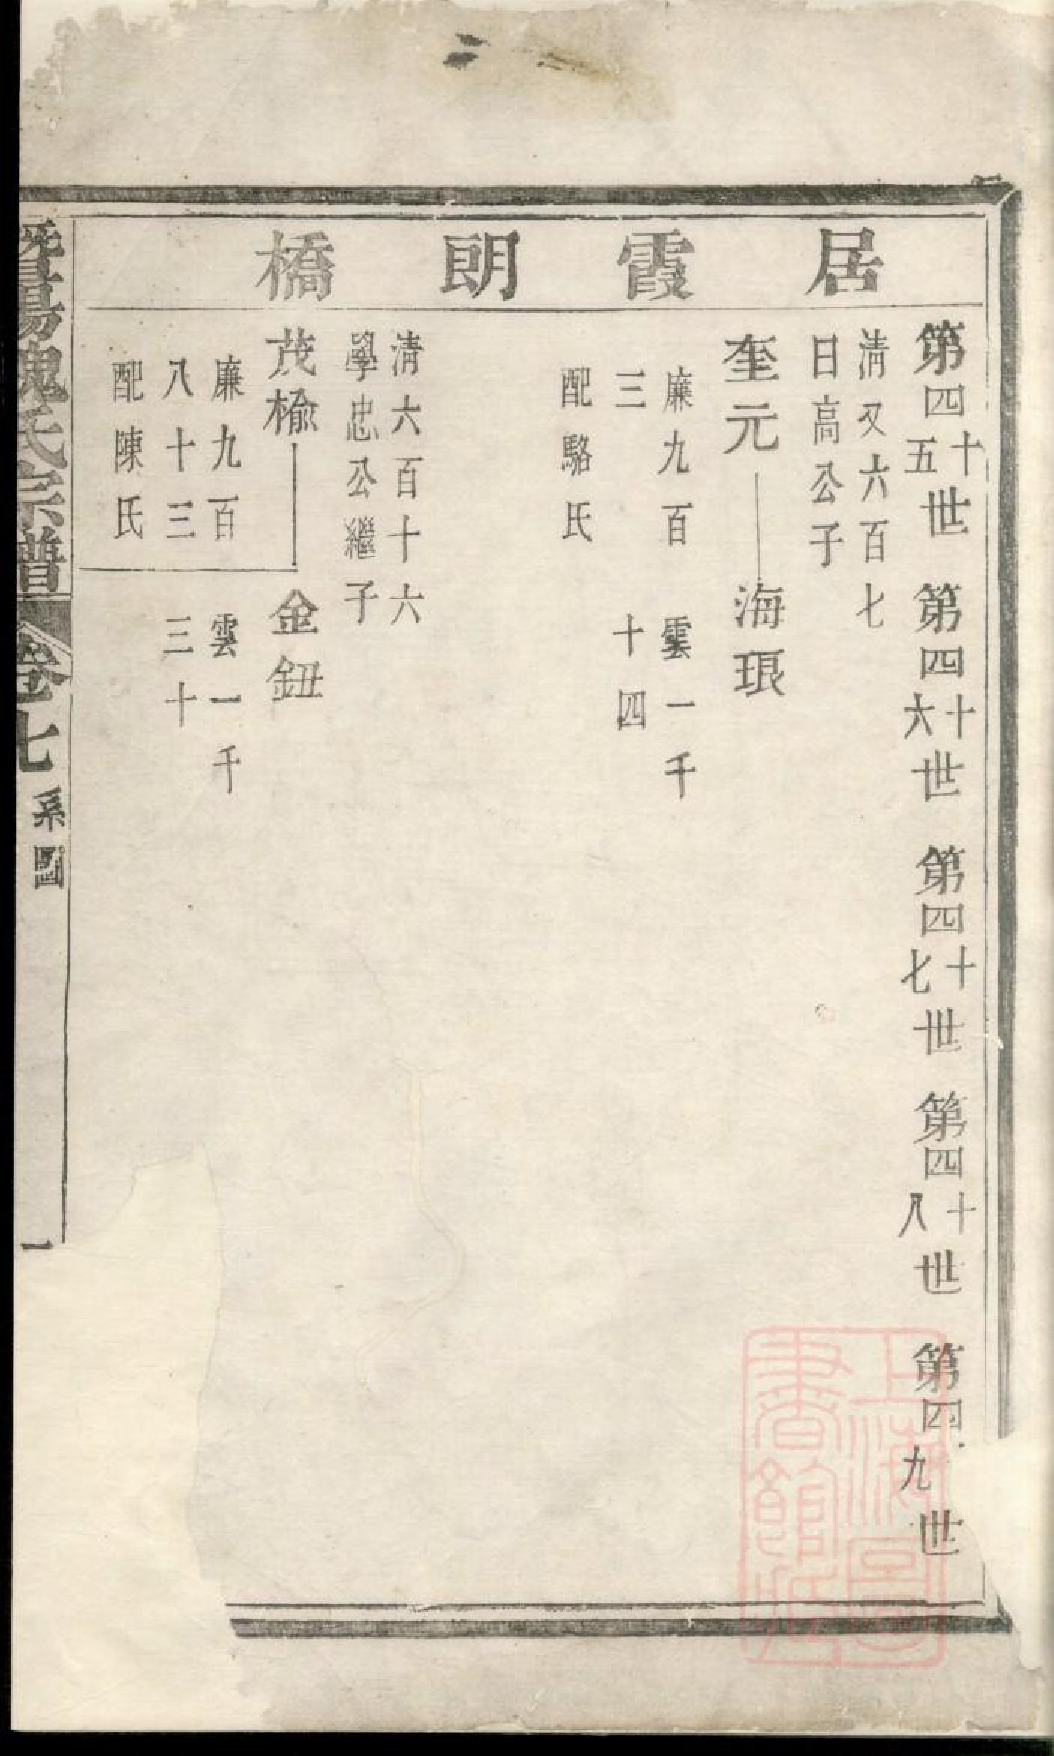 居霞朗橋
第四十五世 第四十六世 第四十七世 第四十八世 第四九世
清又六百七
日高公子
奎元 海琅
廉九百 雲一千
三 十四
配駱氏
清六百十六
學忠公繼子
茂榆 金鈕
廉九百 雲一千
八十三 三十
配陳氏
暨陽魏氏宗譜 卷七 系圖 一
上海圖書館藏